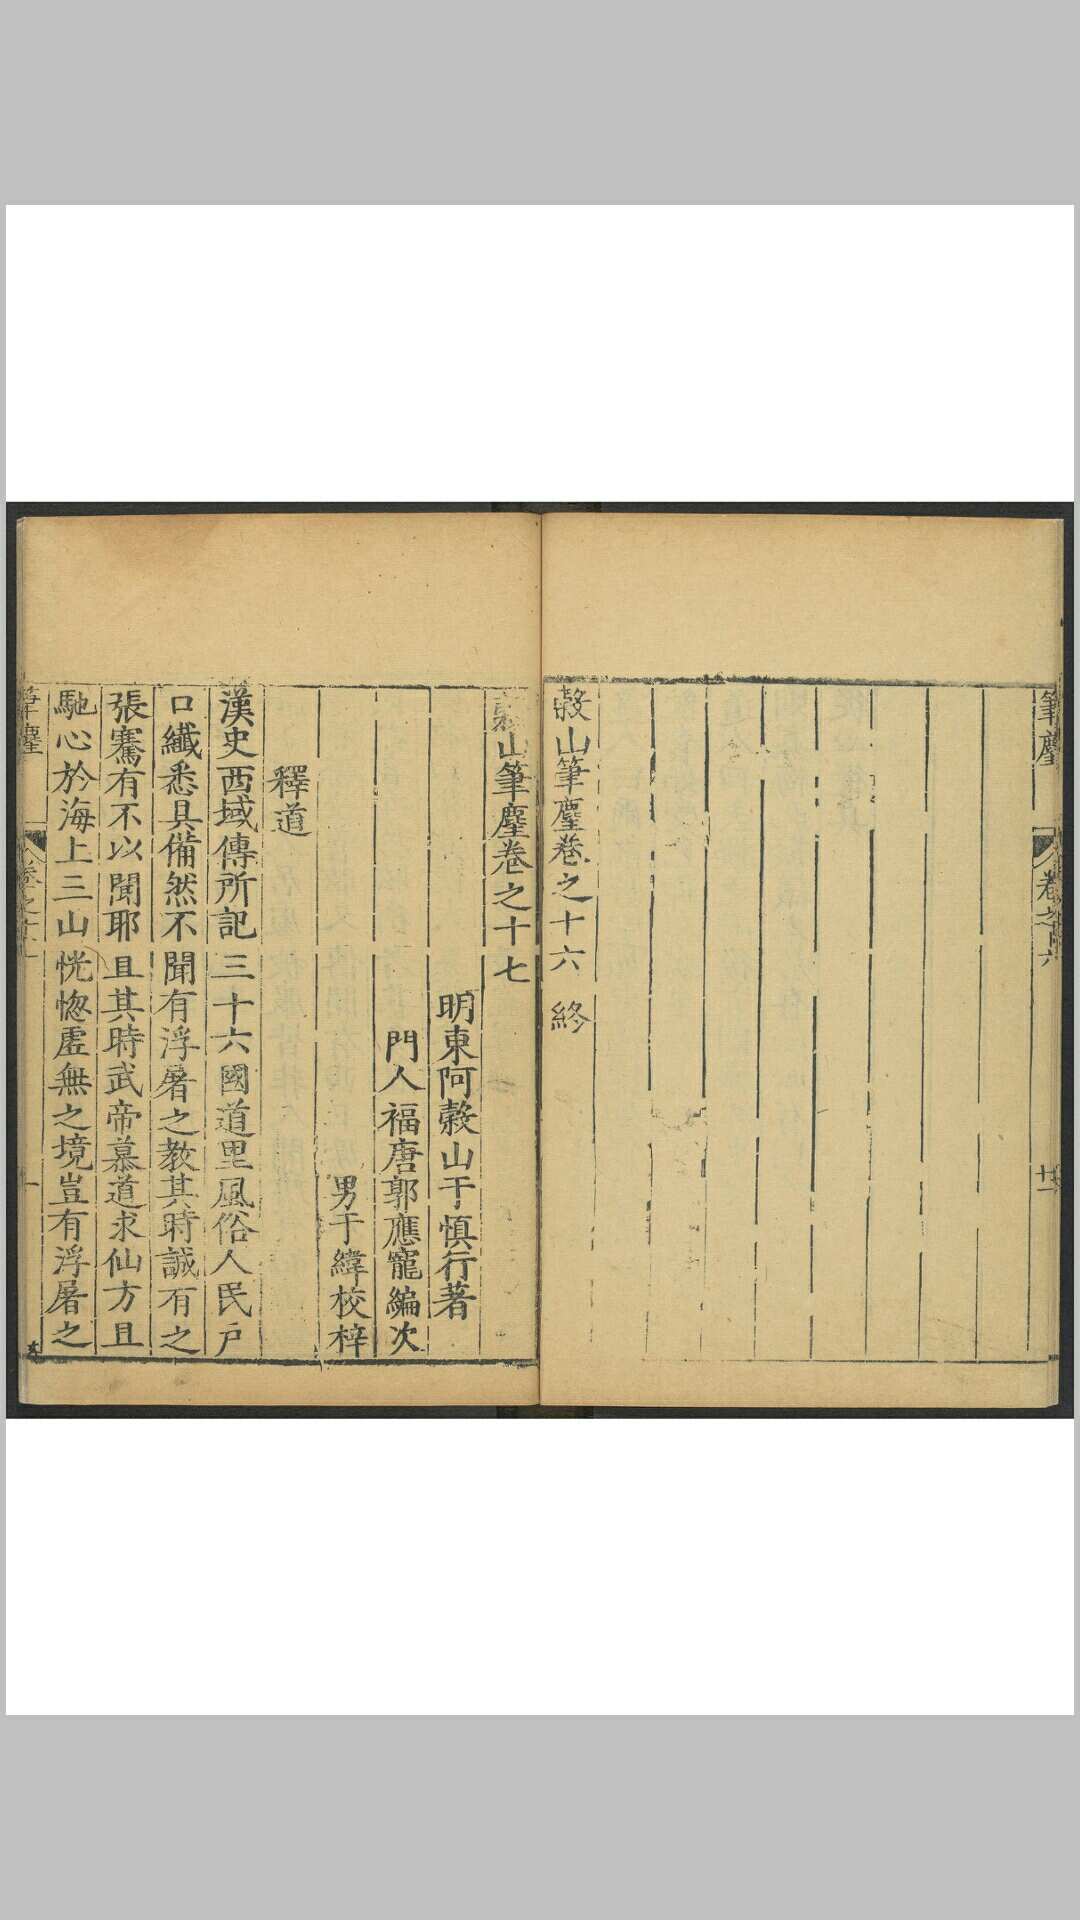 筆麈
卷之十六
十一
糓山筆麈卷之十六 終
糓山筆麈卷之十七
明東阿糓山于慎行著
門人福唐郭應寵編次
男于緯校梓
釋道
漢史西域傳所記三十六國道里風俗人民戶
口纖悉具備然不聞有浮屠之教其時誠有之
張騫有不以聞耶且其時武帝慕道求仙方且
馳心於海上三山恍惚虛無之境豈有浮屠之
筆麈
卷之十七
一